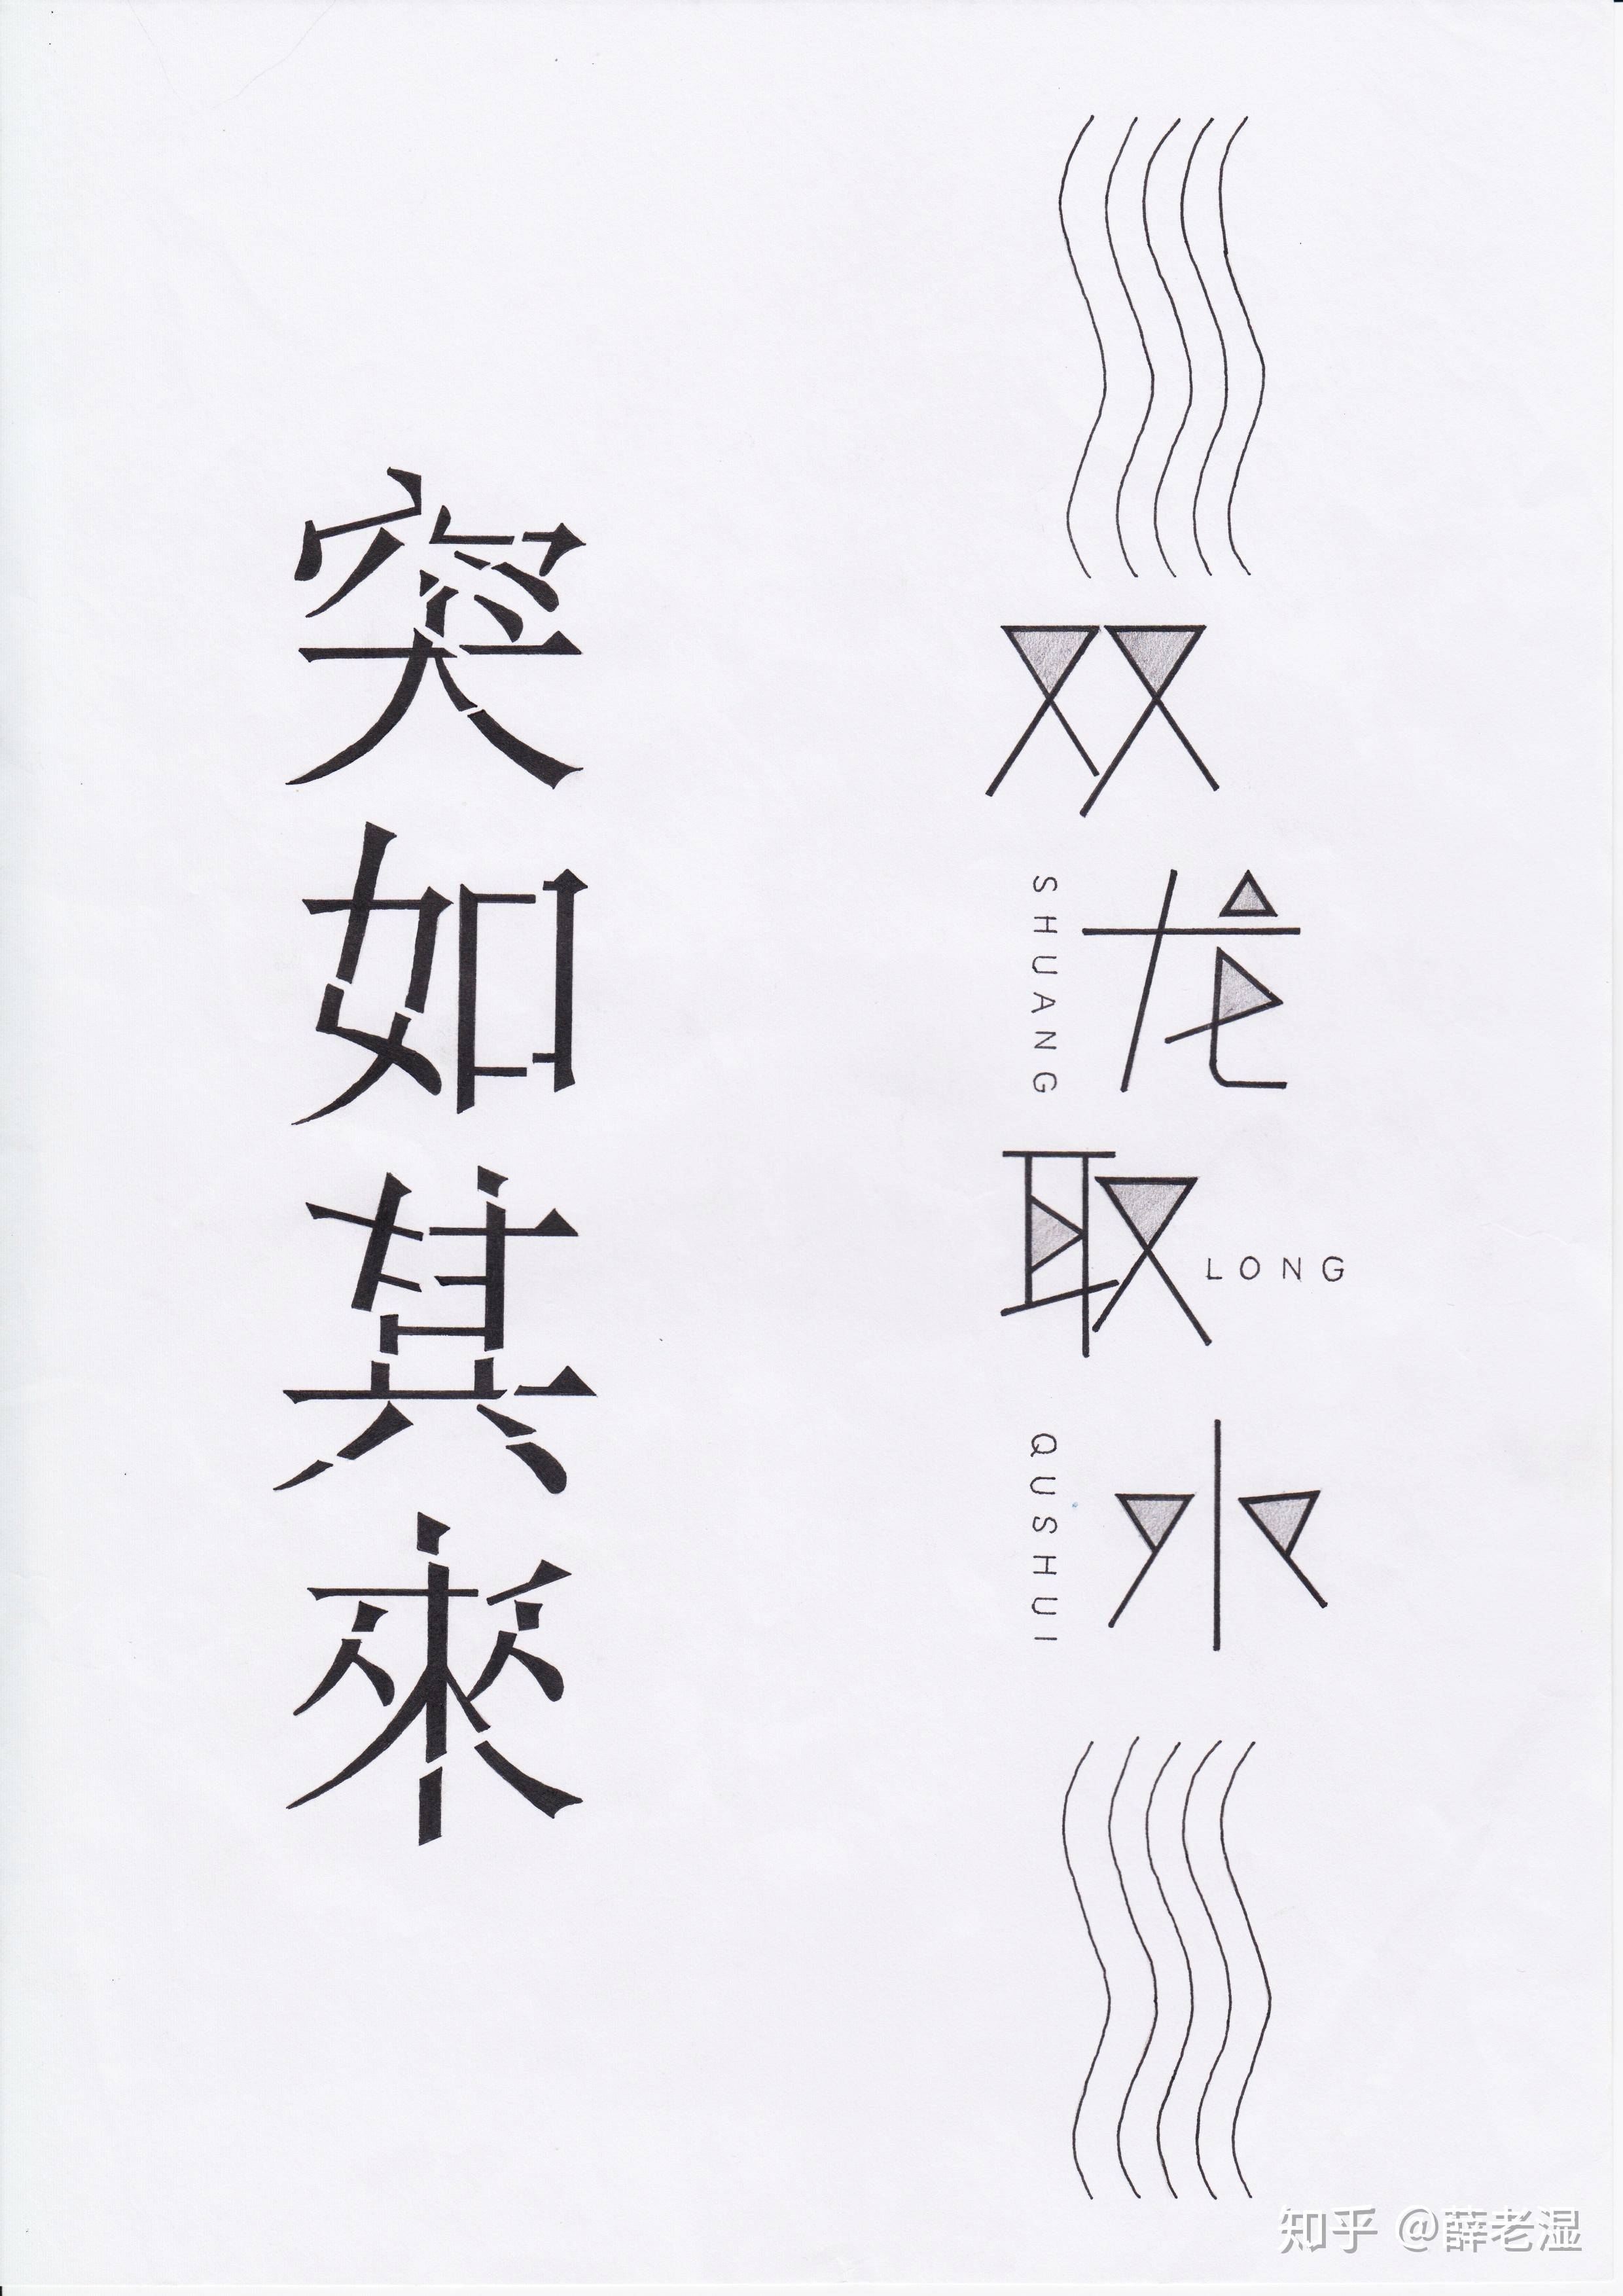 突如其來
双龙取水
SHUANG
LONG
QUSHUI
知乎 @薛老湿